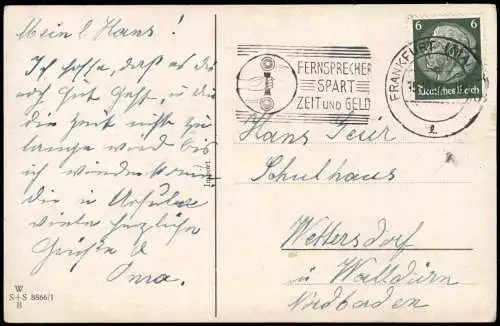 Mein l Hans!
Ich hoffe, daß es dir
noch gut geht, u dir
die Zeit nicht zu
lange wird bis
ich wieder komme
die u Ursula
viele herzliche
Grüße
W
S+S 8866/1
B
Import
FERNSPRECHER
SPART
ZEIT UND GELD
FRANKFURT (MAIN)
6 6
Deutsches Reich
Hans
Schulhaus
Wettersdorf
in Walldürn
Nordbaden